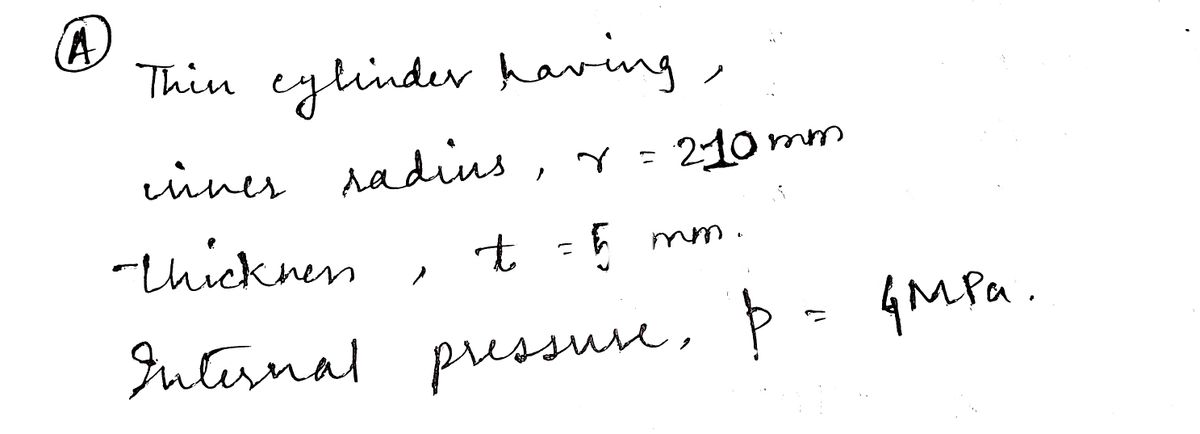 A
Thin cylinder having,
inner radius, r = 210 mm
thickness, t = 5 mm.
Internal pressure, p = 4 MPa.